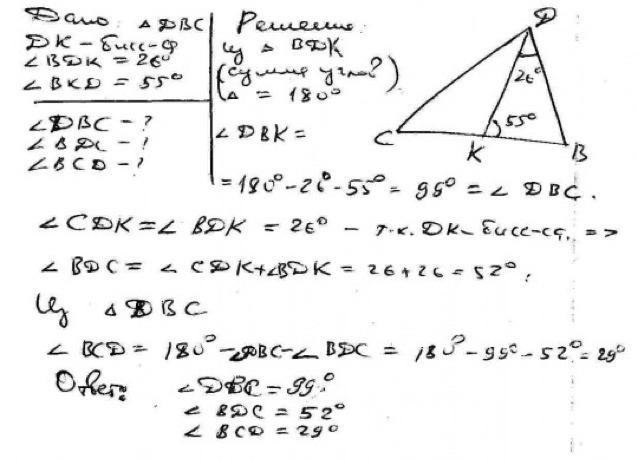 Дано: △DBC
DK – бисс-са
∠BDK = 26°
∠BKD = 55°
∠DBC – ?
∠BDC – ?
∠BCD – ?
Решение:
Из △ BDK
(сумма углов?)
△ = 180°
∠DBK =
= 180° – 26° – 55° = 99° = ∠ DBC.
D
26°
55°
C
K
B
∠CDK = ∠ BDK = 26° – т.к. DK – бисс-са, =>
∠ BDC = ∠ CDK + ∠BDK = 26 + 26 = 52°,
Из △ DBC
∠ BCD = 180° – ∠DBC – ∠ BDC = 180° – 99° – 52° = 29°
Ответ: ∠DBC = 99°
∠ BDC = 52°
∠ BCD = 29°